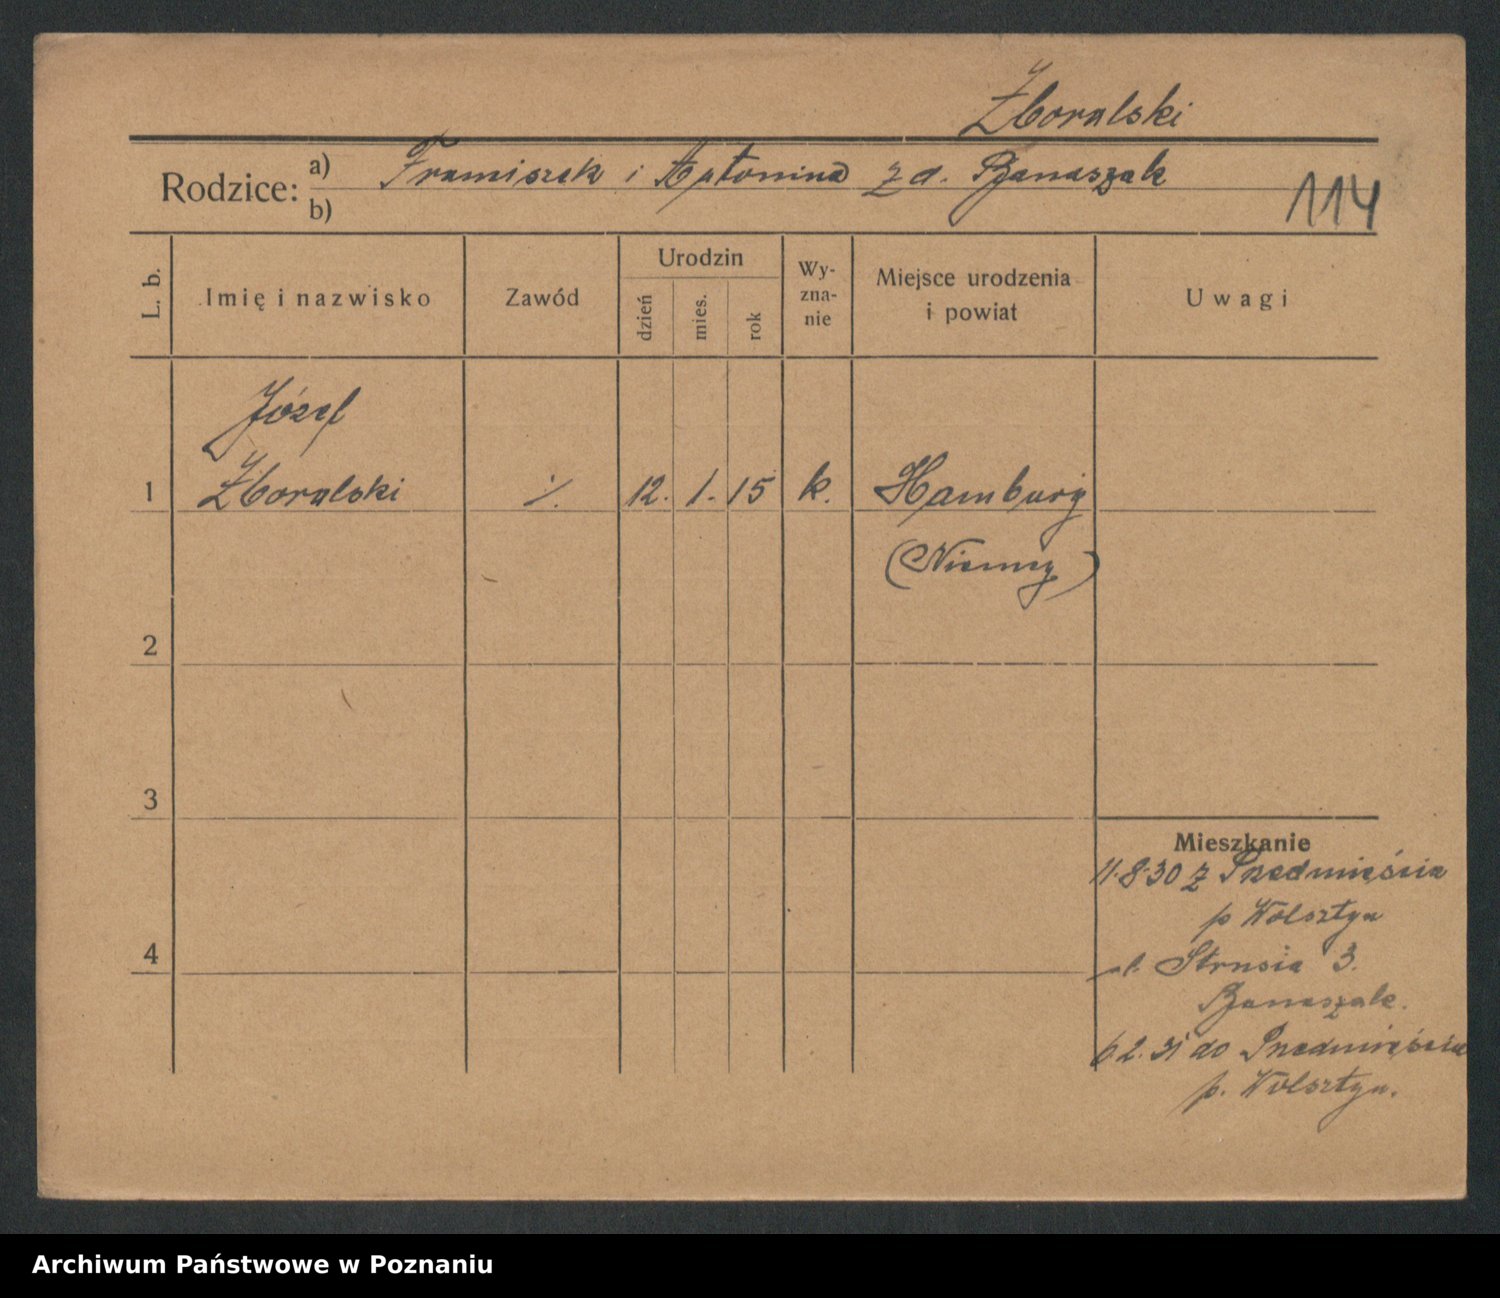 Zboralski
Rodzice: a) Franciszek i Antonina z d. Banaszak
b)
114
L. b.
Imię i nazwisko
Zawód
Urodzin
dzień
mies.
rok
Wy-
zna-
nie
Miejsce urodzenia
i powiat
Uwagi
Józef
1 Zboralski ·/. 12. 1. 15 k. Hamburg
(Niemcy)
2
3
4
Mieszkanie
11.8.30 z Przedmieścia
p Wolsztyn
ul. Strusia 3.
Banaszak.
6 2. 31 do Przedmieścia
p. Wolsztyn.
Archiwum Państwowe w Poznaniu